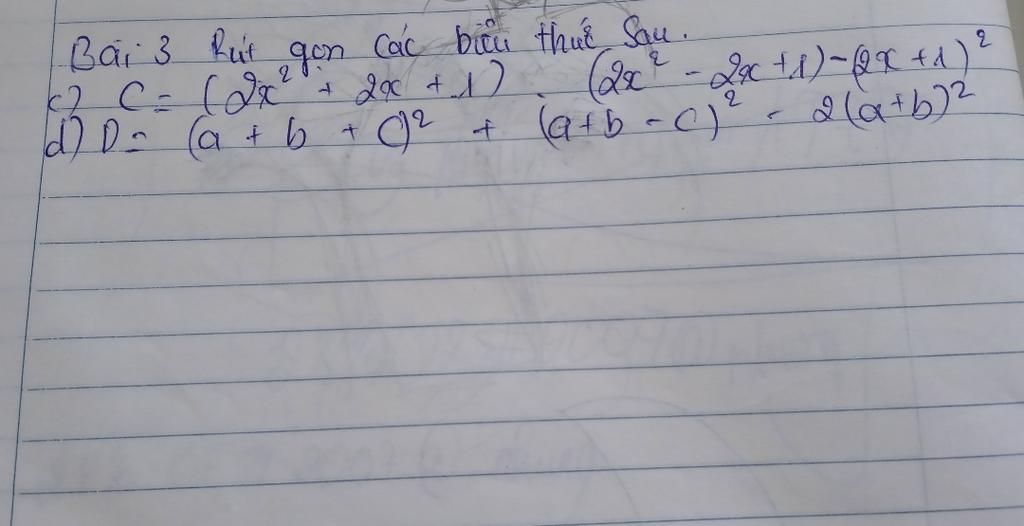 Bài 3 Rút gọn các biểu thức Sau.
c) C = (2x² + 2x + 1) . (2x² - 2x + 1) - (2x + 1)²
d) D = (a + b + c)² + (a + b - c)² - 2(a + b)²